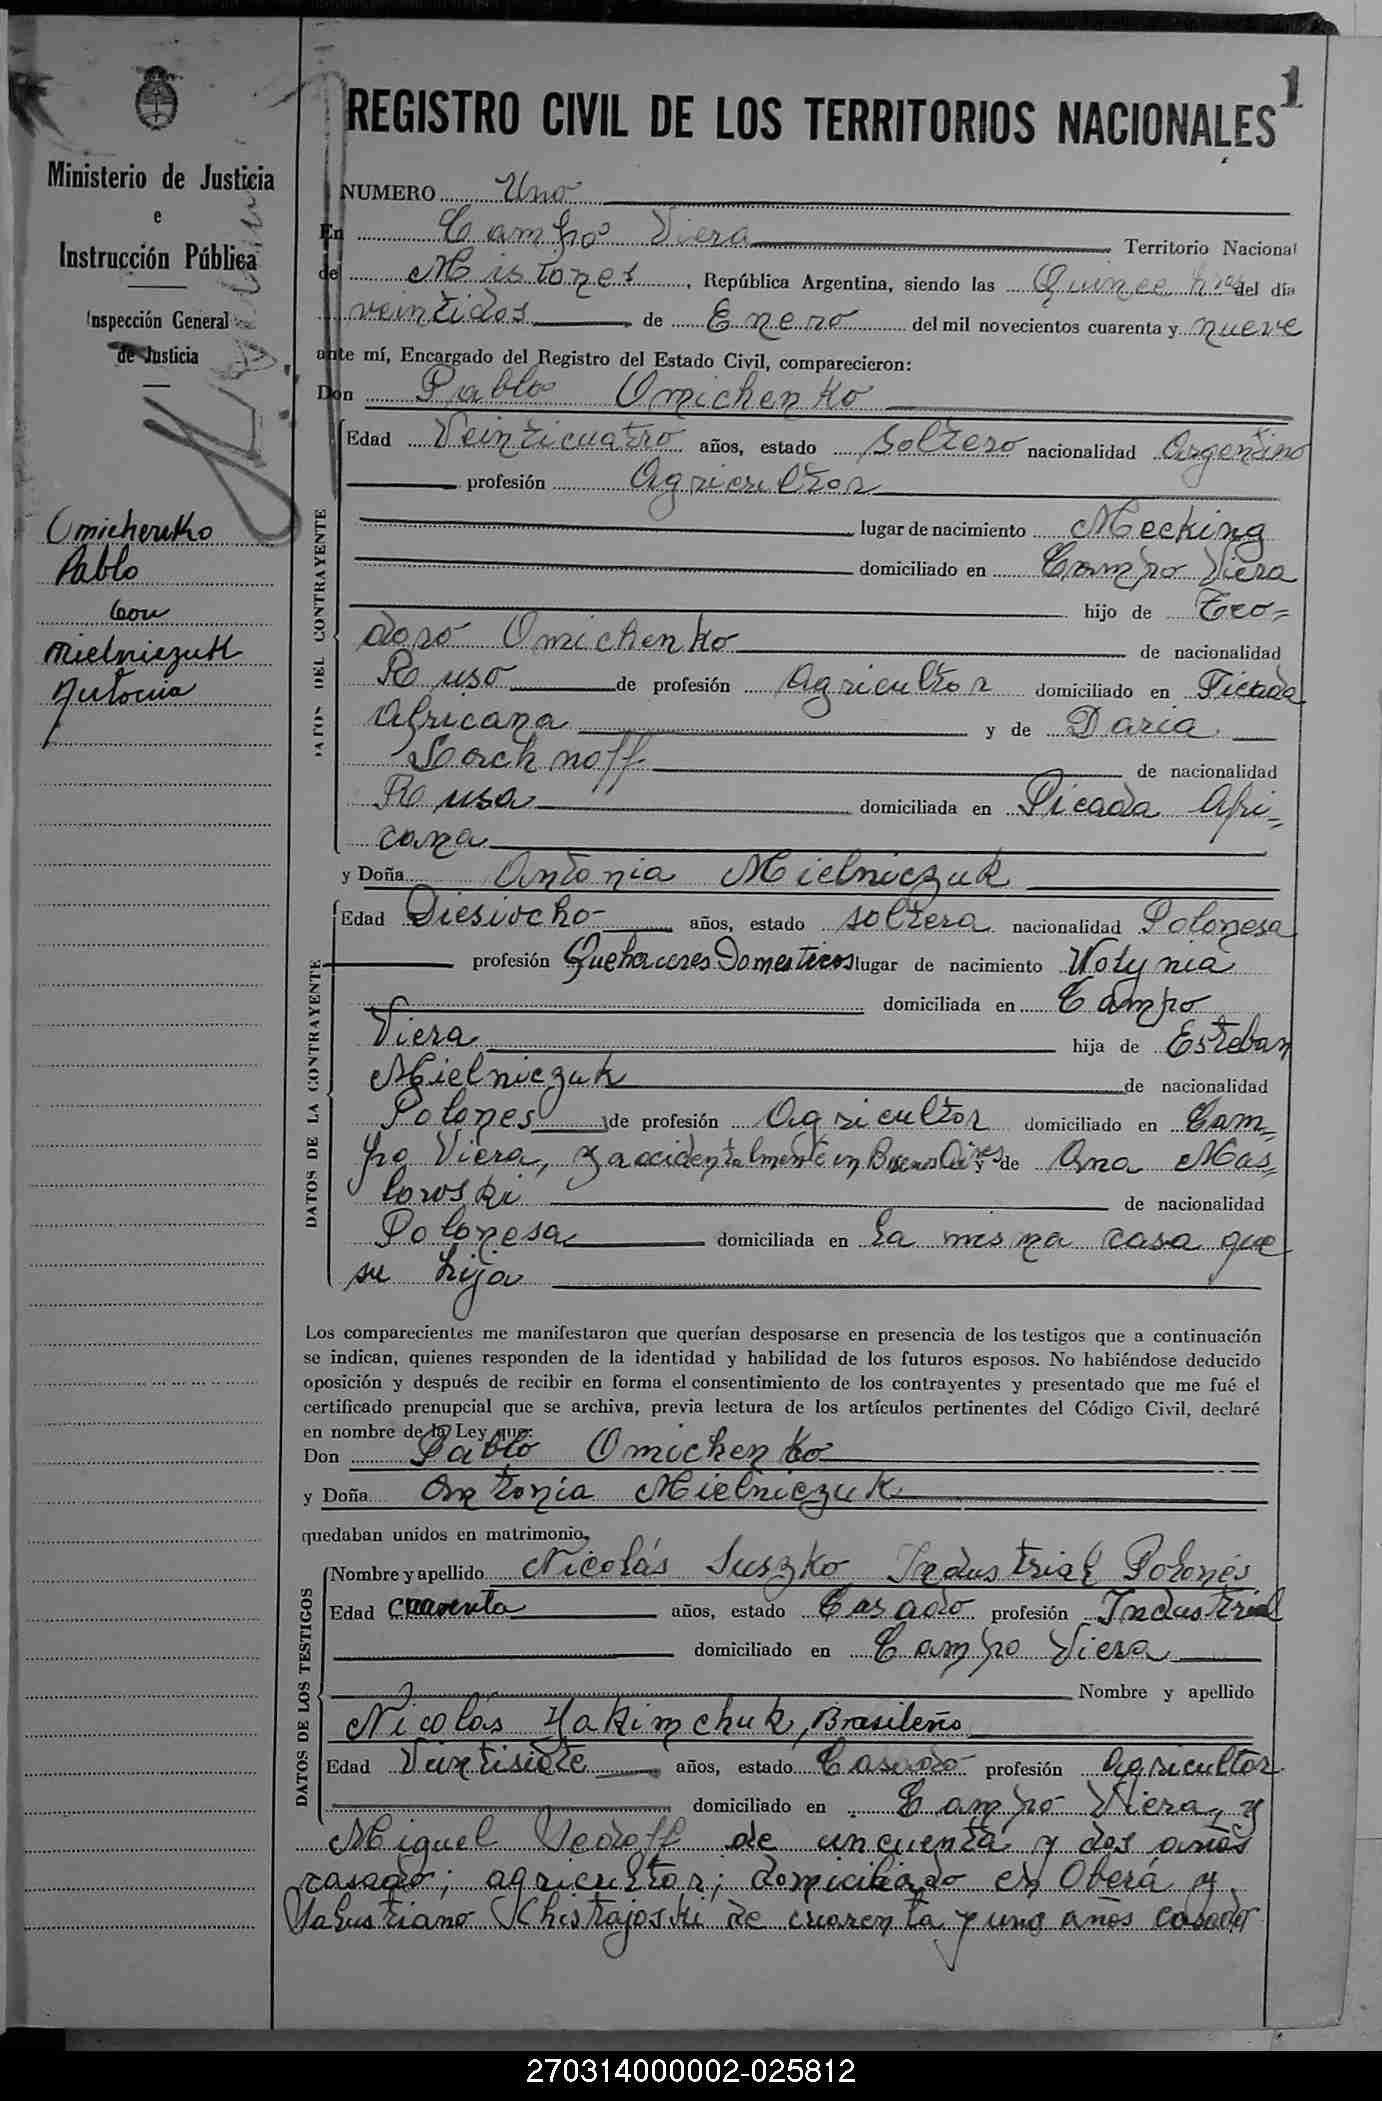 1
REGISTRO CIVIL DE LOS TERRITORIOS NACIONALES
Ministerio de Justicia
e
Instrucción Pública
Inspección General
de Justicia
Omichenko
Pablo
con
Mielniezuk
Antonia
NUMERO Uno
En Campo Viera Territorio Nacional
de Misiones, República Argentina, siendo las Quince hras del día
veintidos de Enero del mil novecientos cuarenta y nueve
ante mí, Encargado del Registro del Estado Civil, comparecieron:
Don Pablo Omichenko
DATOS DEL CONTRAYENTE
Edad Veinticuatro años, estado soltero nacionalidad Argentino
profesión Agricultor
lugar de nacimiento Mecking
domiciliado en Campo Viera
hijo de Teo=
doro Omichenko de nacionalidad
Ruso de profesión Agricultor domiciliado en Picada
Africana y de Daria
de nacionalidad
Rusa domiciliada en Picada Afri=
cana
y Doña Antonia Mielniczuk
DATOS DE LA CONTRAYENTE
Edad Diesiocho años, estado soltera nacionalidad Polonesa
profesión Quehaceres Domesticos lugar de nacimiento Wolynia
domiciliada en Campo
Viera hija de Esteban
Mielniczuk de nacionalidad
Polones de profesión Agricultor domiciliado en Cam=
po Viera, y accidentalmente en Buenos Aires y de Ana Mas=
lowski de nacionalidad
Polonesa domiciliada en la misma casa que
su hija
Los comparecientes me manifestaron que querían desposarse en presencia de los testigos que a continuación
se indican, quienes responden de la identidad y habilidad de los futuros esposos. No habiéndose deducido
oposición y después de recibir en forma el consentimiento de los contrayentes y presentado que me fué el
certificado prenupcial que se archiva, previa lectura de los artículos pertinentes del Código Civil, declaré
en nombre de la Ley que:
Don Pablo Omichenko
y Doña Antonia Mielniczuk
quedaban unidos en matrimonio,
DATOS DE LOS TESTIGOS
Nombre y apellido Nicolás Suszko Industrial Polonés
Edad cuarenta años, estado Casado profesión Industrial
domiciliado en Campo Viera
Nombre y apellido
Nicolás Yakimchuk, Brasileño
Edad Veintisiete años, estado Casado profesión Agricultor
domiciliado en Campo Viera, y
Miguel Fedoff de cincuenta y dos años
casado; agricultor; domiciliado en Oberá y
Salustiano de cuarenta y uno años casado
270314000002-025812